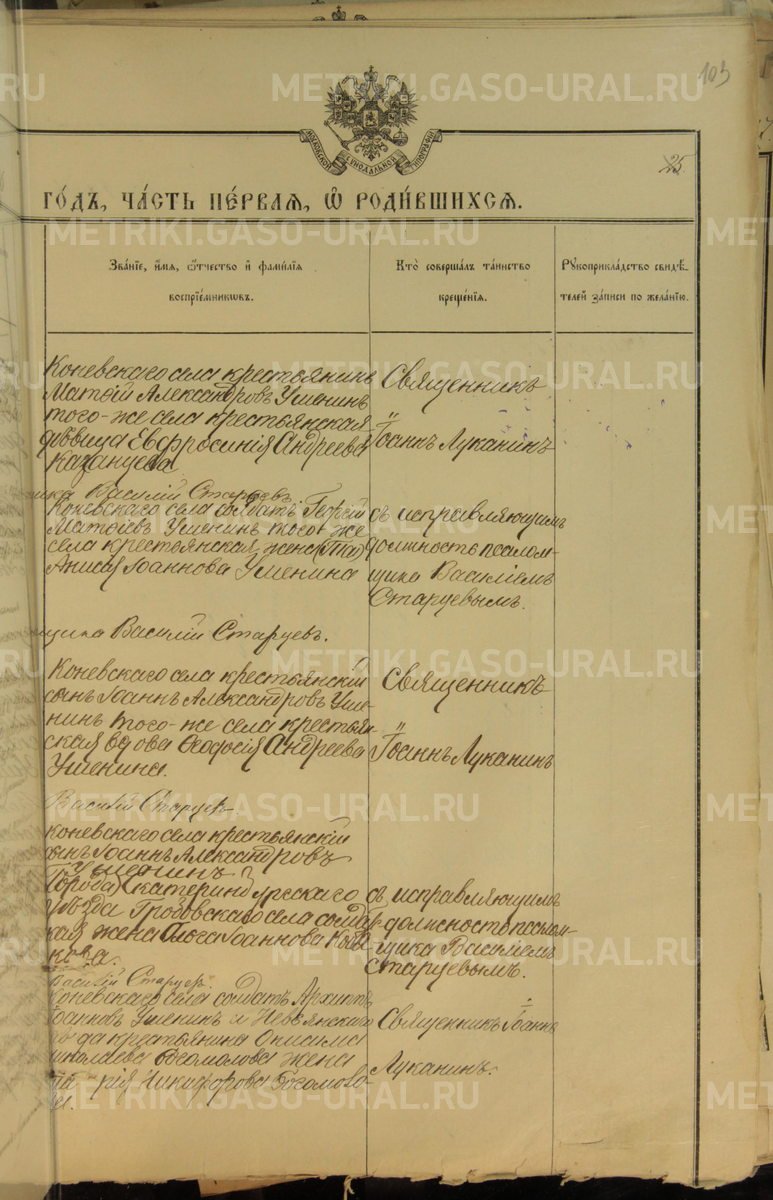 103
МОСКОВСКОЙ СѴНОДАЛЬНОЙ ТИПОГРАФІИ
25.
ГО́ДЪ, ЧА́СТЬ ПЕ́РВАЯ, Ѡ҆ РОДИ́ВШИХСЯ.
Зва́ніе, и҆́мя, ѻ҆́тчество и҆ фами́лія воспріе́мникωвъ.
Кто̀ соверша́лъ та́инство креще́нія.
Рꙋкоприкла́дство свидѣ́телей за́писи по жела́нію.
Коневскаго села крестьянинъ
Матѳій Александровъ Уменинъ
того-же села крестьянская
дѣвица Евфросинія Андреева
Казанцева
Священникъ
Іоаннъ Луканинъ
Василій Старцевъ.
Коневскаго села солдатъ Георгій
Матѳіевъ Уменинъ того-же
села крестьянская жена
Анисія Іоаннова Уменина
съ исправляющимъ
должность псалом-
щика Василіемъ
Старцевымъ.
щика Василій Старцевъ.
Коневскаго села крестьянскій
сынъ Іоаннъ Александровъ Уме-
нинъ того-же села крестьян-
ская вдова Ѳеодосія Андреева
Уменина.
Священникъ
Іоаннъ Луканинъ
Василій Старцевъ
Коневскаго села крестьянскій
сынъ Іоаннъ Александровъ
Уменинъ
города Екатеринбургскаго
уѣзда Гробовскаго села солдат-
кая жена Ольга Іоаннова
кова.
съ исправляющимъ
должность псалом-
щика Василіемъ
Старцевымъ.
Василій Старцевъ.
Коневскаго села солдатъ Архиппъ
Іоанновъ Уменинъ и Невьянскаго
крестьянина Онисима
Николаева Богомолова жена
Никифорова Богомоло-
Священникъ Іоаннъ
Луканинъ.
METRIKI.GASO-URAL.RU